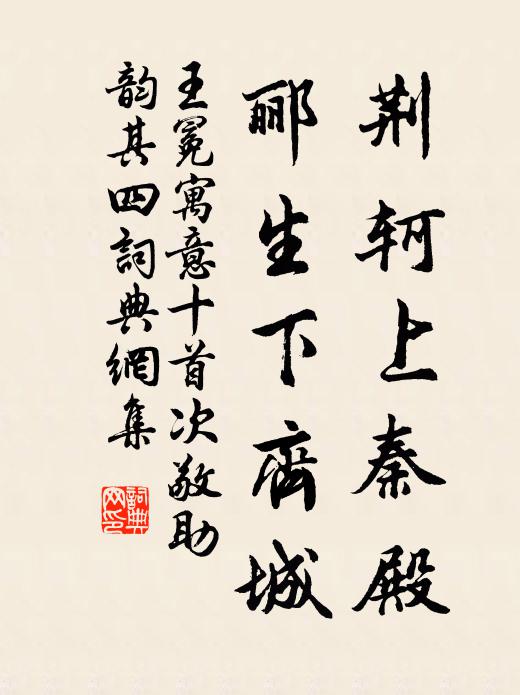 荆轲上秦殿
郦生下齊城
王冕寓意十首次敬助
韵其四詞典網集
詞典網印